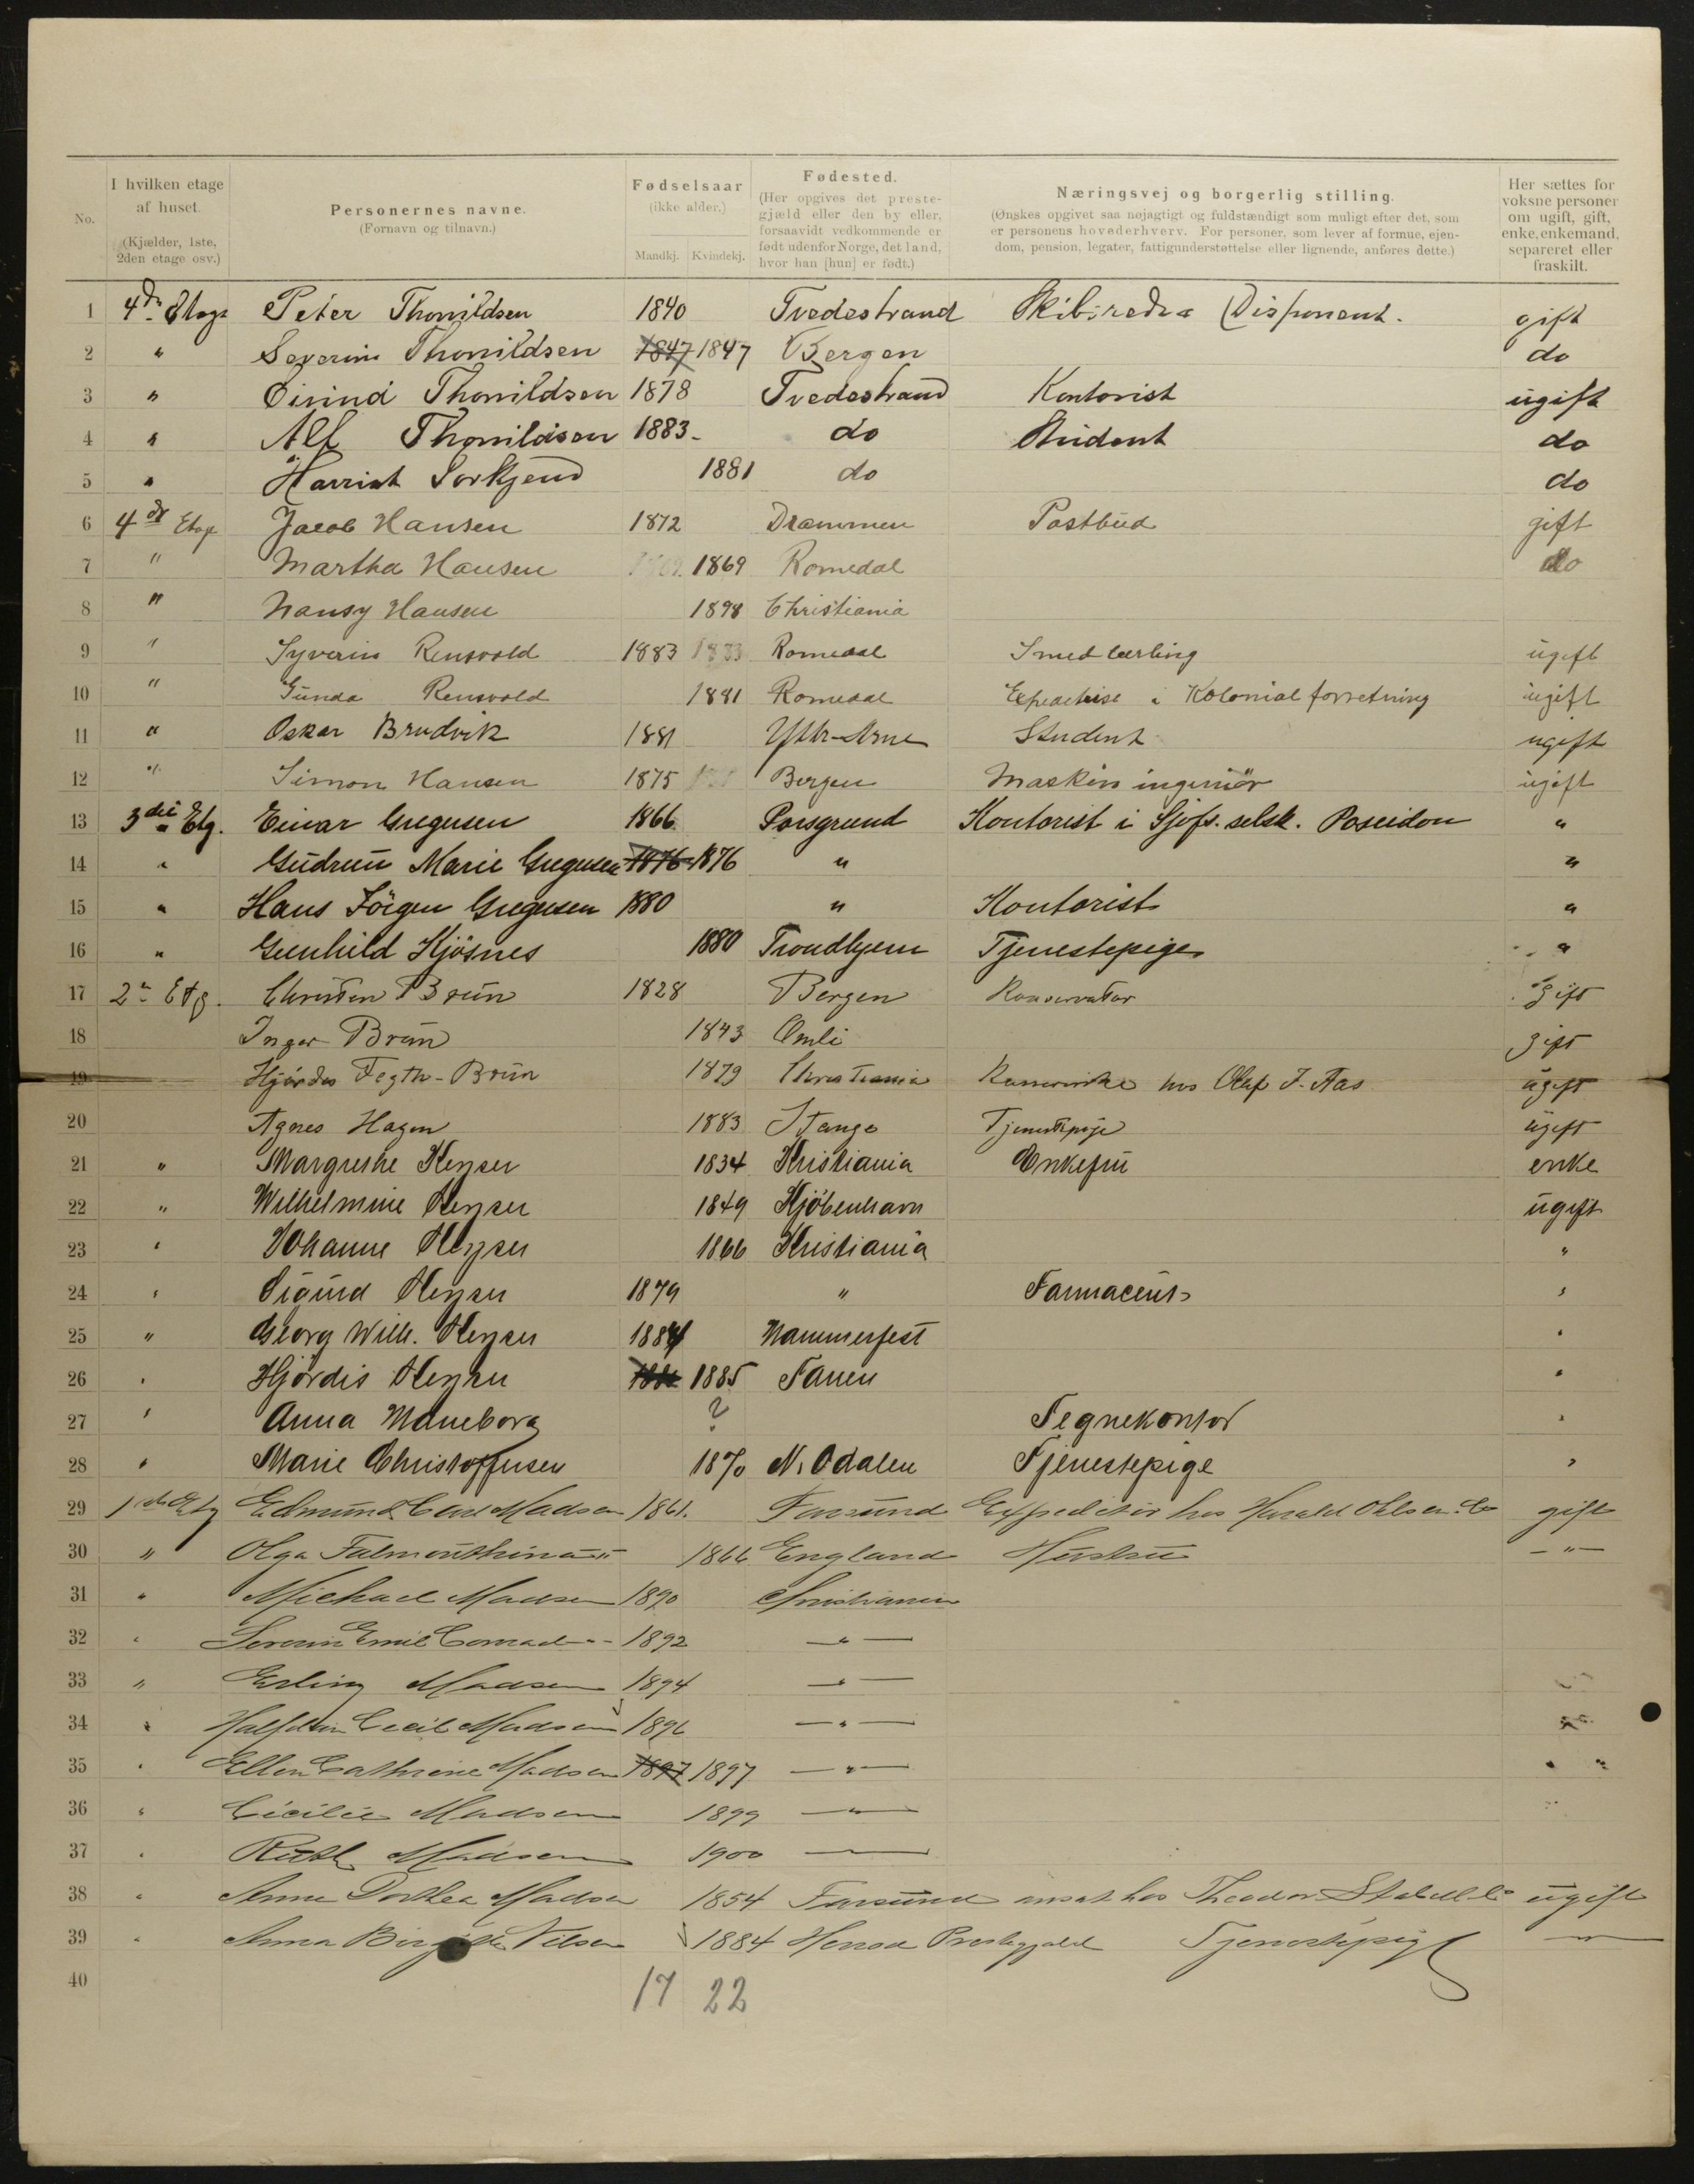 No.
I hvilken etage
af huset.
(Kjælder, 1ste,
2den etage osv.)
Personernes navne.
(Fornavn og tilnavn.)
Fødselsaar
(ikke alder.)
Mandkj. Kvindekj.
Fødested.
(Her opgives det preste-
gjæld eller den by eller,
forsaavidt vedkommende er
født udenfor Norge, det land,
hvor han [hun] er født.)
Næringsvej og borgerlig stilling.
(Ønskes opgivet saa nøjagtigt og fuldstændigt som muligt efter det, som
er personens hovederhverv. For personer, som lever af formue, ejen-
dom, pension, legater, fattigunderstøttelse eller lignende, anføres dette.)
Her sættes for
voksne personer
om ugift, gift,
enke, enkemand,
separeret eller
fraskilt.
1 4de Etage Peter Thorsildsen 1840 Tvedestrand Skibsreder (Disponent. gift
2 " Severin Thorsildsen 1847 1847 Bergen do
3 " Eivind Thorsildsen 1878 Tvedestrand Kontorist ugift
4 " Alf Thorsildsen 1883 do Student do
5 " Harriet 1881 do do
6 4de Etage Jacob Hansen 1872 Drammen Postbud gift
7 " Martha Hansen 1869 Romedal do
8 " Nansy Hansen 1898 Christiania
9 " Syverin Rensvold 1883 Romedal Smedlærling ugift
10 " Gunda Rensvold 1881 Romedal i Kolonial forretning ugift
11 " Oskar Brudvik 1881 Ytre-Arne Student ugift
12 " Simon Hansen 1875 Bergen Maskin ingeniør ugift
13 3die Etg. Einar Gregusen 1866 Porsgrund Kontorist i Sjøfs. selsk. Poseidon "
14 " Gudrun Marie Gregusen 1876 1876 " "
15 " Hans Jörgen Gregusen 1880 " Kontorist "
16 " Gunhild Kjösnes 1880 Trondhjem Tjenestepige "
17 2n Etg. Christen Brun 1828 Bergen Konservator Gift
18 Inger Brun 1843 Omli gift
19 Hjördis Fegth-Brun 1879 Christiania hos Olaf F. Aas ugift
20 Agnes Hagen 1883 Stange Tjenestepige ugift
21 " Margrethe Keyser 1834 Kristiania Enkefru enke
22 " Wilhelmine Keyser 1849 Kjöbenhavn ugift
23 " Johanne Keyser 1866 Kristiania "
24 " Sigurd Keyser 1879 " Farmaceut "
25 " Georg Wilh. Keyser 1884 Hammerfest "
26 " Hjördis Keyser 1885 Fanen "
27 " Anna Maneborg ? Tegnekontor "
28 " Marie Christoffersen 1870 N. Odalen Tjenestepige "
29 1ste Etg Edmund Carl Madsen 1861. Farsund Expeditör hos Harald Ohlsen & Co gift
30 " Olga 1866 England Hustru - " -
31 " Michael Madsen 1890 Christiania
32 " Severin Emil Conrad - " - 1892 - " -
33 " Erling Madsen 1894 - " -
34 " Halfdan Cecil Madsen 1896 - " -
35 " Ellen Cathrine Madsen 1897 1897 - " - " "
36 " Cicilie Madsen 1899 - " -
37 " Ruth Madsen 1900 —
38 " Anne Dorthea Madsen 1854 Farsund ansat hos Theodor ugift
39 " Anna Nilsen 1884 Prestegjæld Tjenestepige - " -
40 17 22